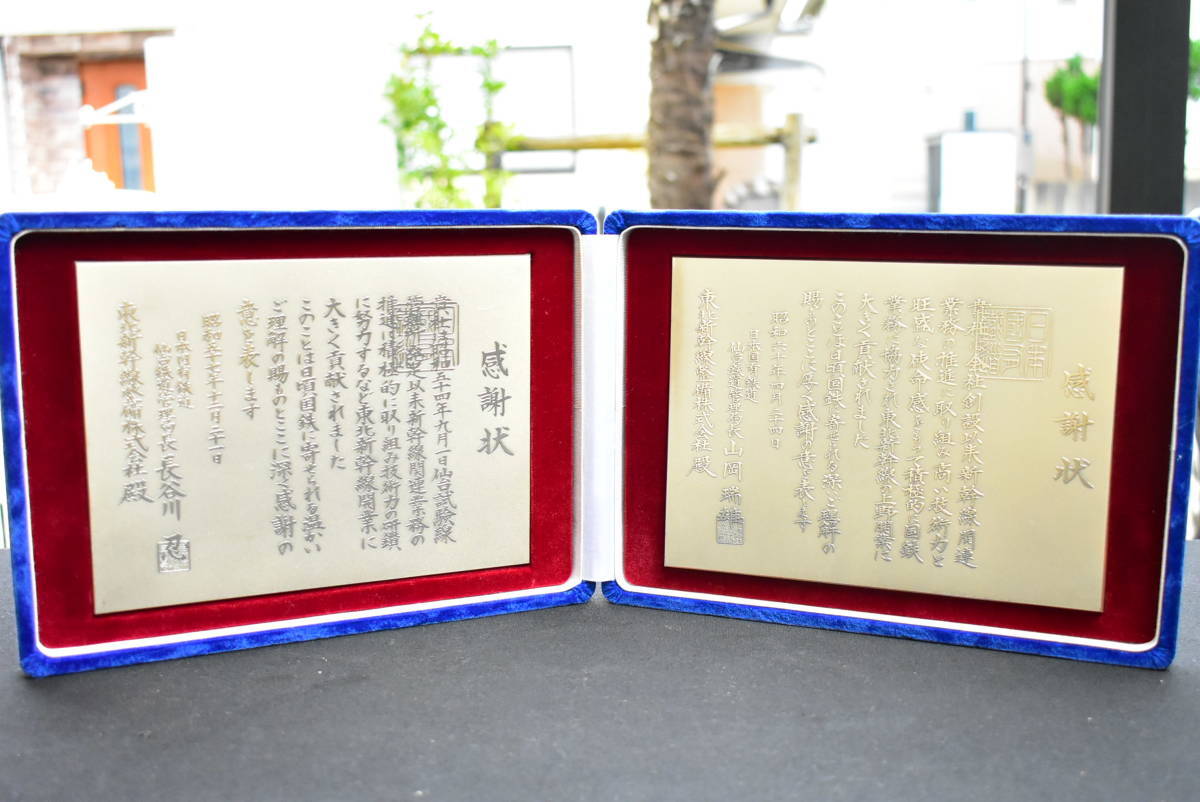 感謝状
貴社は昭和五十四年九月一日仙台試験線
以来新幹線関連業務の
推進に積極的に取り組み技術力の研鑚
に努力するなど東北新幹線開業に
大きく貢献されました
このことは日頃国鉄に寄せられる温かい
ご理解の賜ものとここに深く感謝の
意を表します
昭和五十七年十一月二十一日
日本国有鉄道
仙台鉄道管理局長 長谷川 忍
東北新幹線整備株式会社 殿
感謝状
貴社は会社創設以来新幹線関連
業務の推進に取り組み高い技術力と
旺盛な使命感をもって積極的に国鉄
業務に協力され東北新幹線の上野開業に
大きく貢献されました
このことは日頃国鉄に寄せられる深いご理解の
賜ものとここに厚く感謝の意を表します
昭和六十年四月二十四日
日本国有鉄道
仙台鉄道管理局長 山岡 瑞雄
東北新幹線整備株式会社 殿